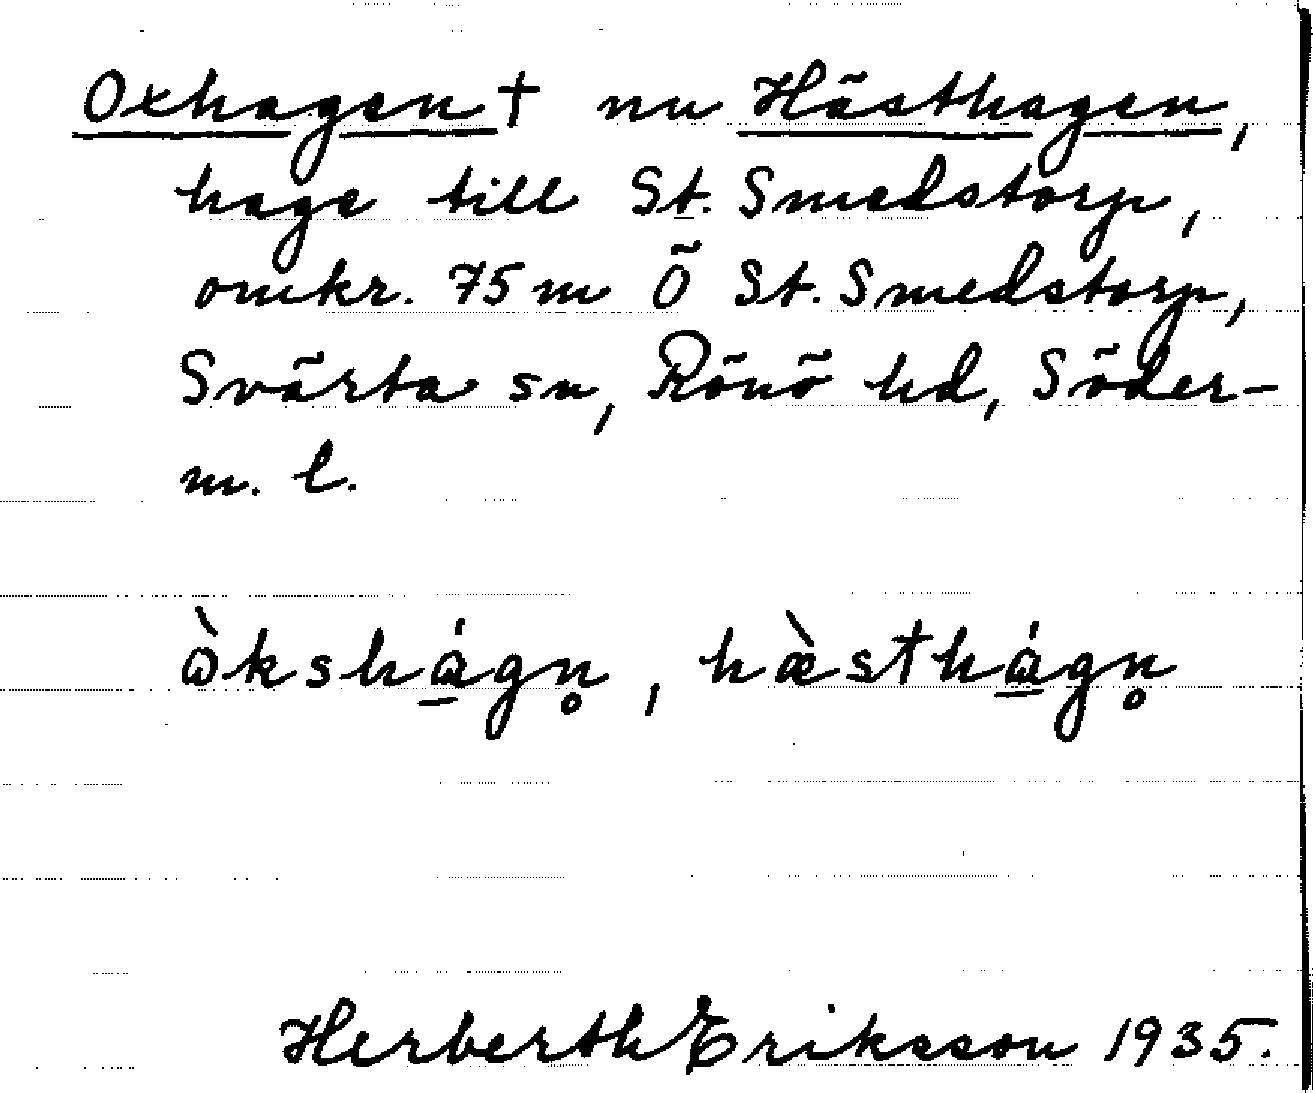 Oxhagen† nu Hästhagen,
hage till St. Smedstorp,
omkr. 75 m Ö St. Smedstorp,
Svärta sn, Rönö hd, Söder-
m. l.
òkshágn̥, hæ̀sthágn̥
Herberth Eriksson 1935.